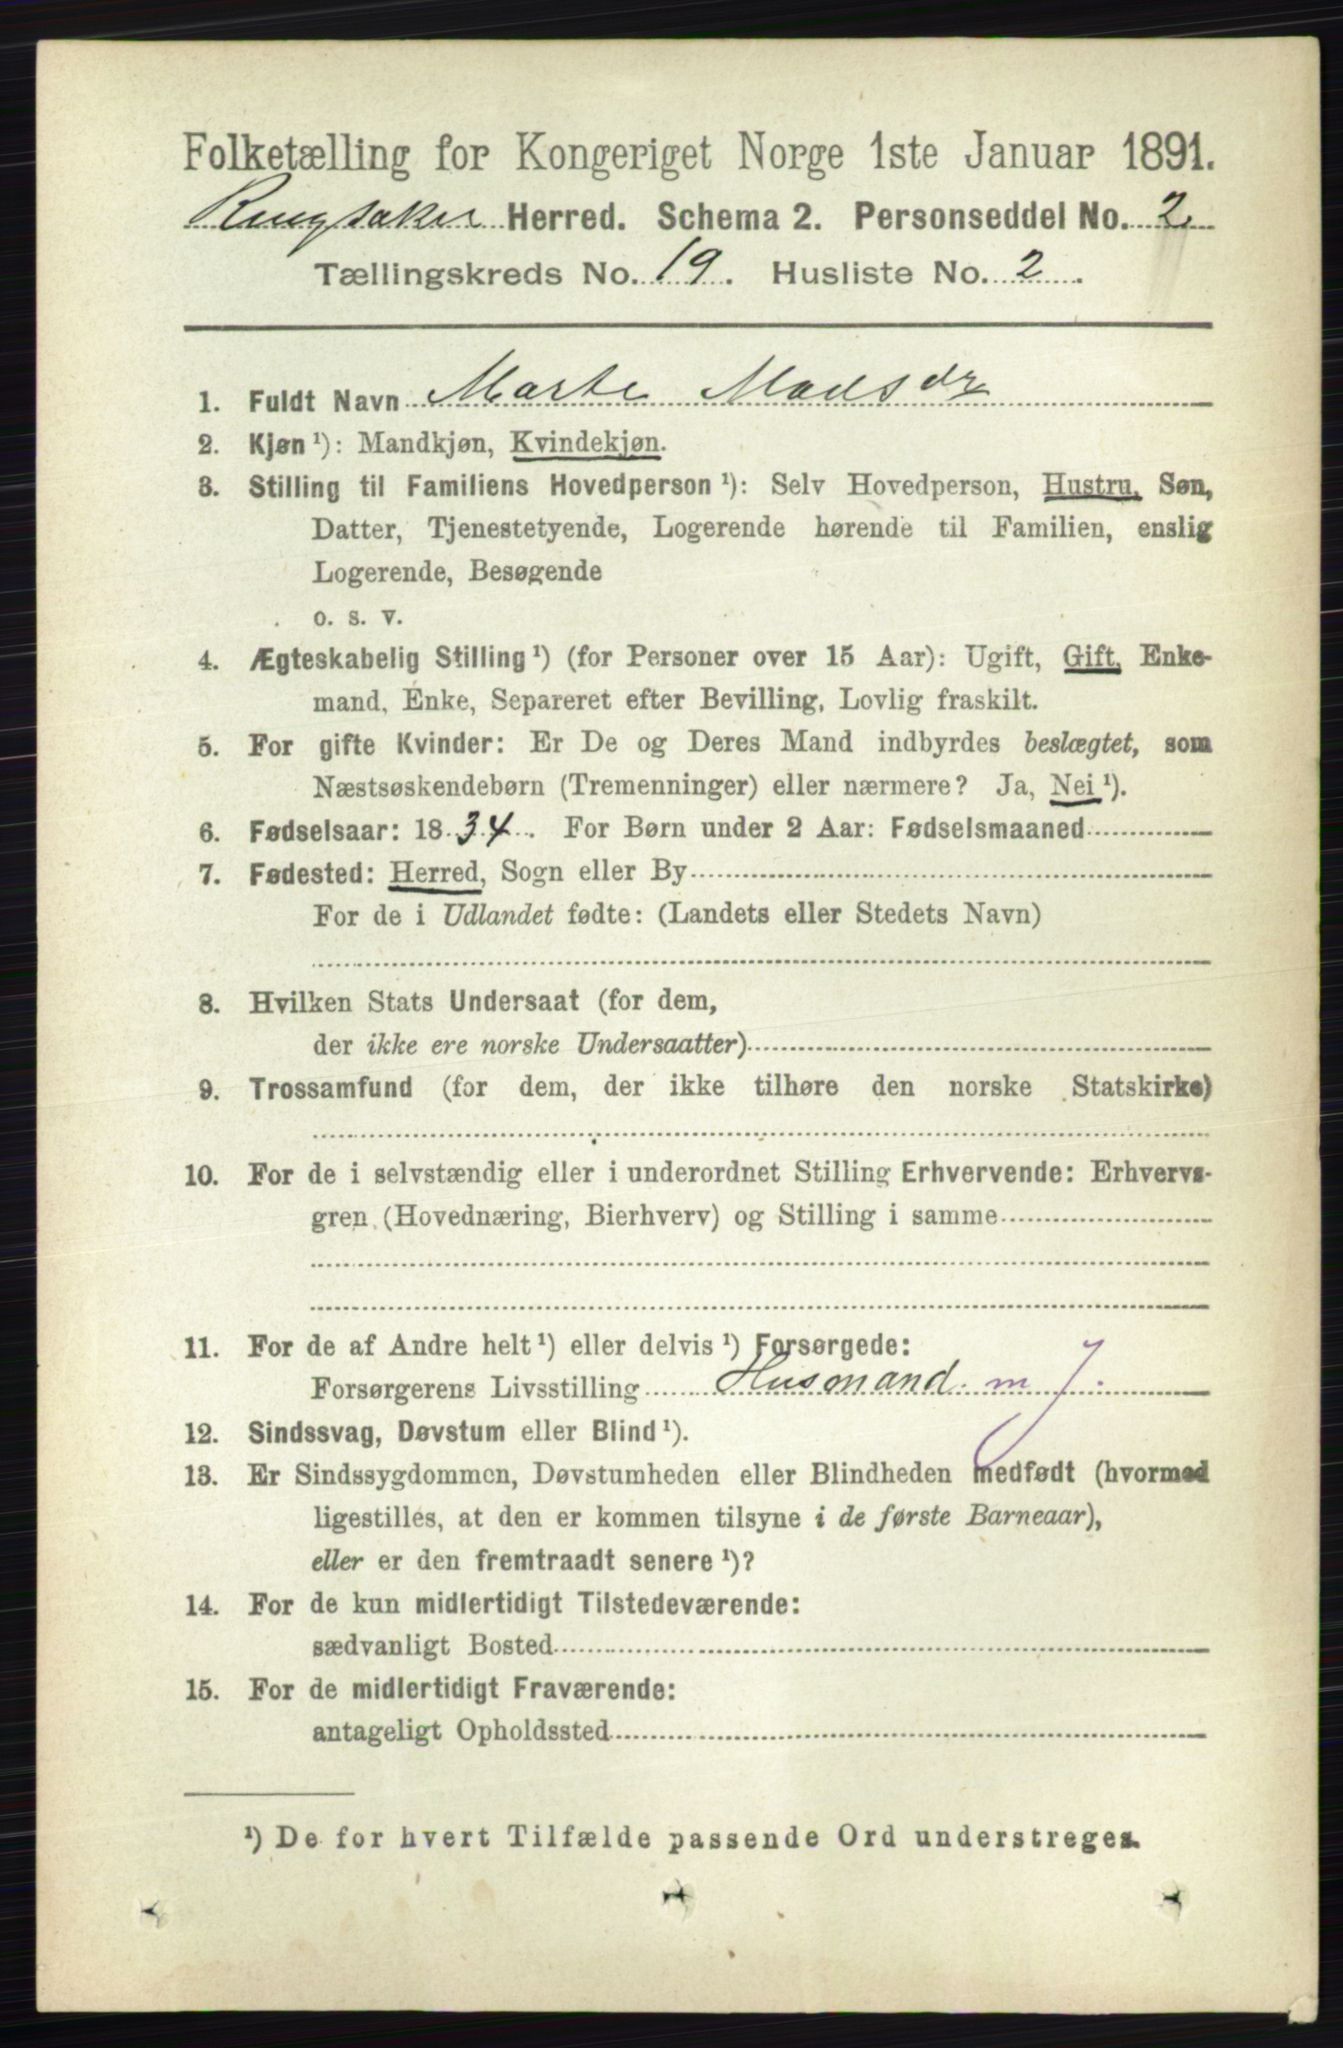 Folketælling for Kongeriget Norge 1ste Januar 1891.
Ringsaker Herred. Schema 2. Personseddel No. 2
Tællingskreds No. 19. Husliste No. 2.
1. Fuldt Navn Marte Madsdr
2. Kjøn ¹): Mandkjøn, Kvindekjøn.
3. Stilling til Familiens Hovedperson ¹): Selv Hovedperson, Hustru, Søn,
Datter, Tjenestetyende, Logerende hørende til Familien, enslig
Logerende, Besøgende
o. s. v.
4. Ægteskabelig Stilling ¹) (for Personer over 15 Aar): Ugift, Gift, Enke-
mand, Enke, Separeret efter Bevilling, Lovlig fraskilt.
5. For gifte Kvinder: Er De og Deres Mand indbyrdes beslægtet, som
Næstsøskendebørn (Tremenninger) eller nærmere? Ja, Nei ¹).
6. Fødselsaar: 1834. For Børn under 2 Aar: Fødselsmaaned
7. Fødested: Herred, Sogn eller By
For de i Udlandet fødte: (Landets eller Stedets Navn)
8. Hvilken Stats Undersaat (for dem,
der ikke ere norske Undersaatter)
9. Trossamfund (for dem, der ikke tilhøre den norske Statskirke)
10. For de i selvstændig eller i underordnet Stilling Erhvervende: Erhvervs-
gren (Hovednæring, Bierhverv) og Stilling i samme
11. For de af Andre helt ¹) eller delvis ¹) Forsørgede:
Forsørgerens Livsstilling Husmand m J.
12. Sindssvag, Døvstum eller Blind ¹).
13. Er Sindssygdommen, Døvstumheden eller Blindheden medfødt (hvormed
ligestilles, at den er kommen tilsyne i de første Barneaar),
eller er den fremtraadt senere ¹)?
14. For de kun midlertidigt Tilstedeværende:
sædvanligt Bosted
15. For de midlertidigt Fraværende:
antageligt Opholdssted
¹) De for hvert Tilfælde passende Ord understreges.